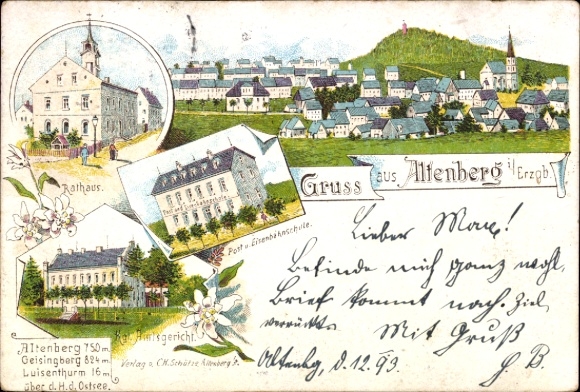 Rathaus.
Gruss aus Altenberg i/Erzgb.
Post u. Eisenbahnschule.
Kgl. Amtsgericht.
Altenberg 750 m.
Geisingberg 824 m.
Luisenthurm 16 m.
über d. H. d. Ostsee.
Verlag v. C.H. Schütze Altenberg
Lieber Max!
Befinde mich ganz wohl.
Brief kommt nach. Ziel
verrückt. Mit Gruß
Altenbg, d. 12.